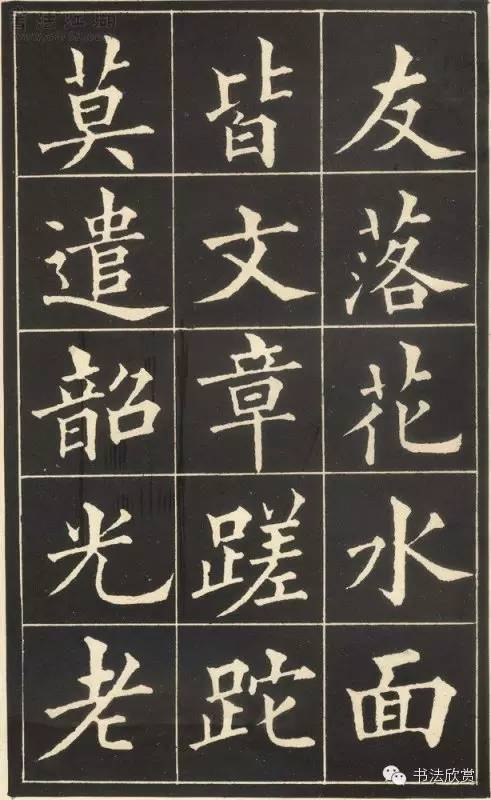 友落花水面
皆文章蹉跎
莫遣韶光老
书法欣赏